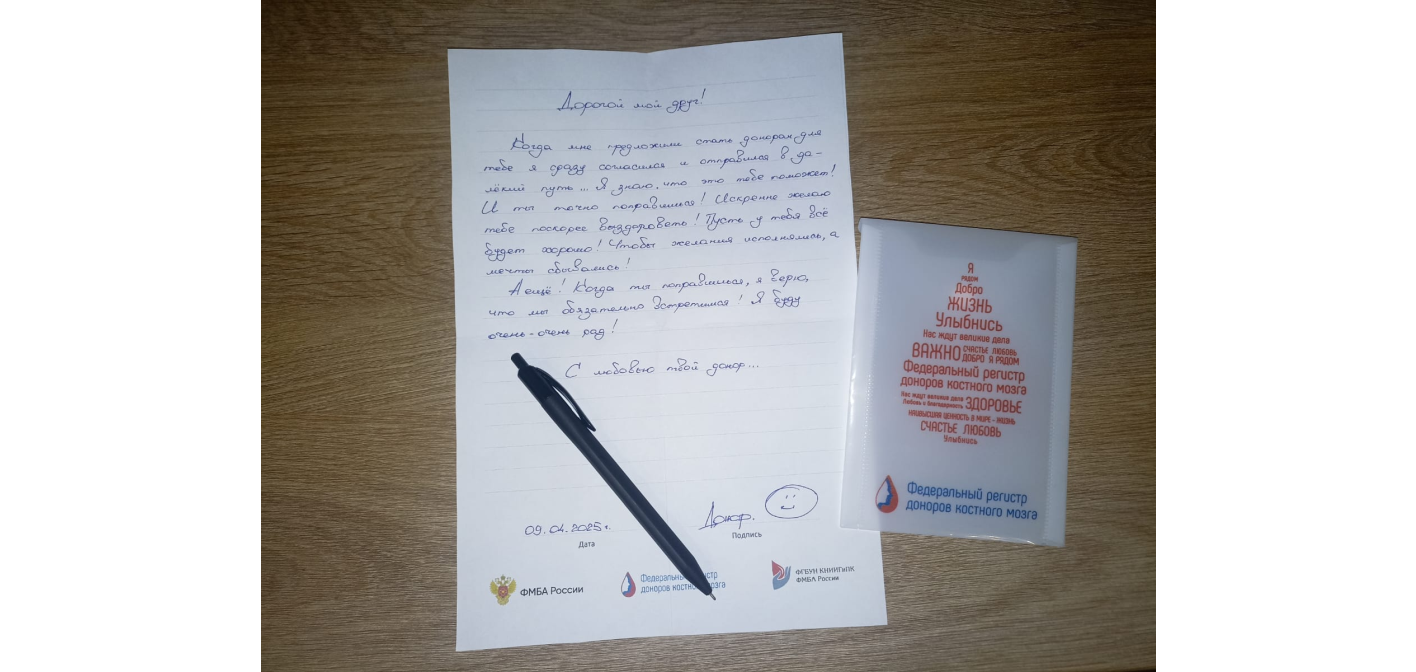 Дорогой мой друг!
Когда мне предложили стать донором для
тебе я сразу согласился и отправился в да-
лёкий путь... Я знаю, что это тебе поможет!
И ты точно поправишься! Искренне желаю
тебе поскорее выздороветь! Пусть у тебя всё
будет хорошо! Чтобы желания исполнялись, а
мечты сбывались!
А ещё! Когда ты поправишься, я верю,
что мы обязательно встретимся! Я буду
очень-очень рад!
С любовью твой донор...
09.04.2025г.
Дата
Донор.
Подпись
ФМБА России
Федеральный регистр
доноров костного мозга
ФГБУН КНИИГиПК
ФМБА России
Я
рядом
Добро
ЖИЗНЬ
Улыбнись
Нас ждут великие дела
ВАЖНО СЧАСТЬЕ ЛЮБОВЬ
ДОБРО Я РЯДОМ
Федеральный регистр
доноров костного мозга
Нас ждут великие дела
Любовь и благодарность ЗДОРОВЬЕ
НАИВЫСШАЯ ЦЕННОСТЬ В МИРЕ - ЖИЗНЬ
СЧАСТЬЕ ЛЮБОВЬ
Улыбнись
Федеральный регистр
доноров костного мозга